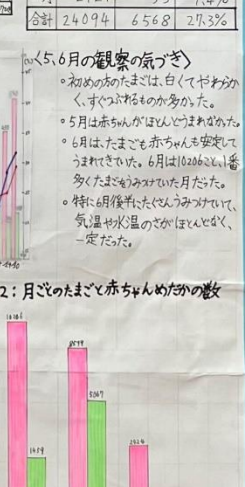 合計 24094 6568 27.3%
〈5,6月の観察の気づき〉
。初めの方のたまごは、白くてやわらか
く、すぐつぶれるものが多かった。
。5月は赤ちゃんがほとんどうまれなかった。
。6月は、たまごも赤ちゃんも安定して
うまれてきていた。6月は10206こと、1番
多くたまごをうみつけていた月だった。
。特に6月後半にたくさんうみつけていて、
気温や水温のさがほとんどなく、
一定だった。
2:月ごとのたまごと赤ちゃんめだかの数
10206
8599
5067
2424
1459